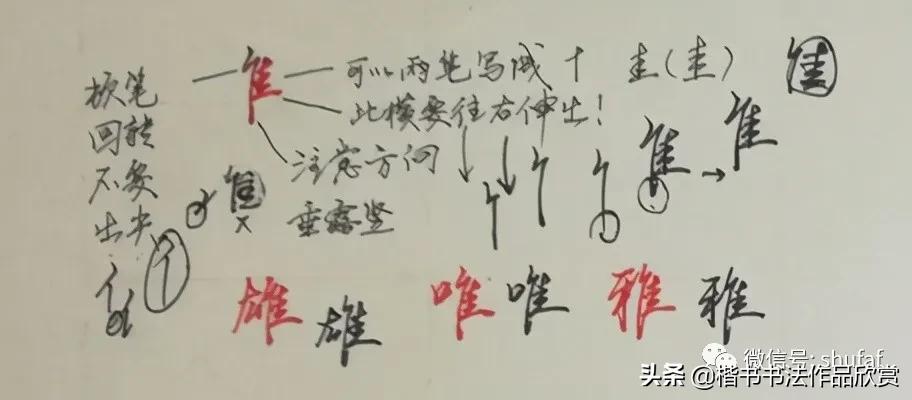 隹 可以两笔写成十 圭(圭) 隹
此横要往右伸出!
注意方向
垂露竖
提笔
回转
不要
出尖
隹 × 隹 → 隹
雄 雄 唯 唯 雅 雅
微信号: shufaf
头条 @楷书书法作品欣赏